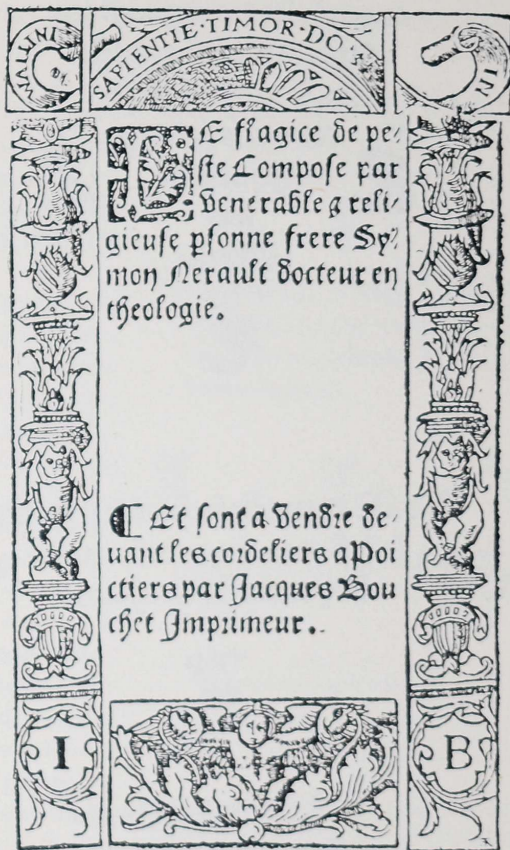 SAPIENTIE·TIMOR·DO
IN
LE flagice de pe⸗
ste Compose par
venerable ⁊ reli⸗
gieuse psonne frere Sy⸗
mon Nerault docteur en
theologie.
¶ Et sont a vendre de⸗
uant les cordeliers a Poi
ctiers par Jacques Bou
chet Imprimeur.
I B